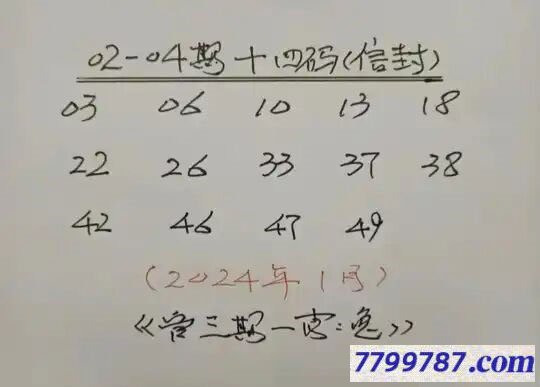 02-04期十四码(信封)
03 06 10 13 18
22 26 33 37 38
42 46 47 49
(2024年1月)
《管三期一肖:兔》
7799787.com